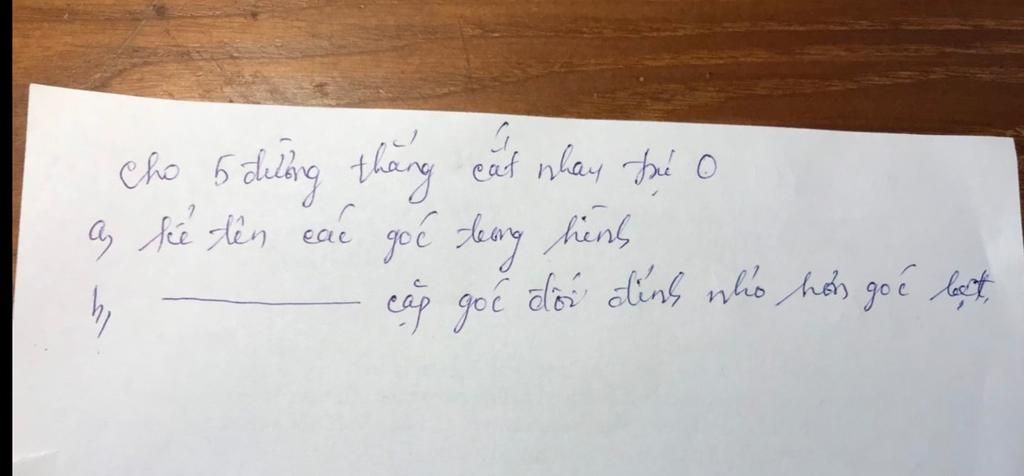 cho 5 đường thẳng cắt nhau tại O
a, kể tên các góc trong hình
b, ——— cặp góc đối đỉnh nhỏ hơn góc bẹt.